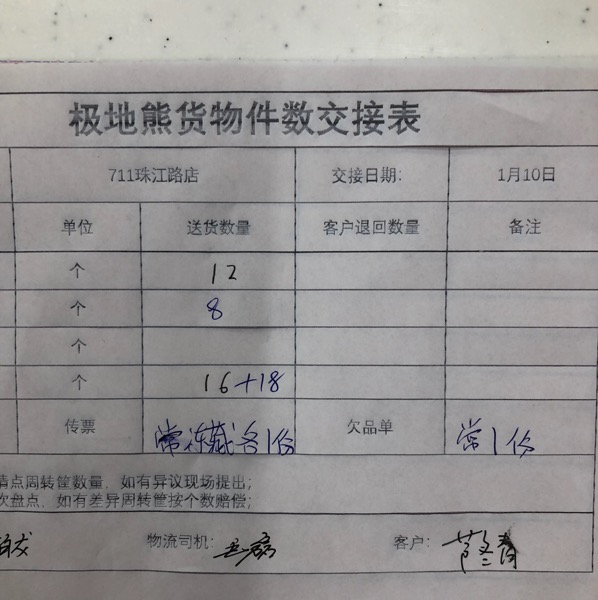 极地熊货物件数交接表
711珠江路店 交接日期: 1月10日
单位 送货数量 客户退回数量 备注
个 12
个 8
个
个 16+18
传票 常冻藏各1份 欠品单 常1份
清点周转筐数量，如有异议现场提出；
次盘点，如有差异周转筐按个数赔偿；
物流司机: 客户: